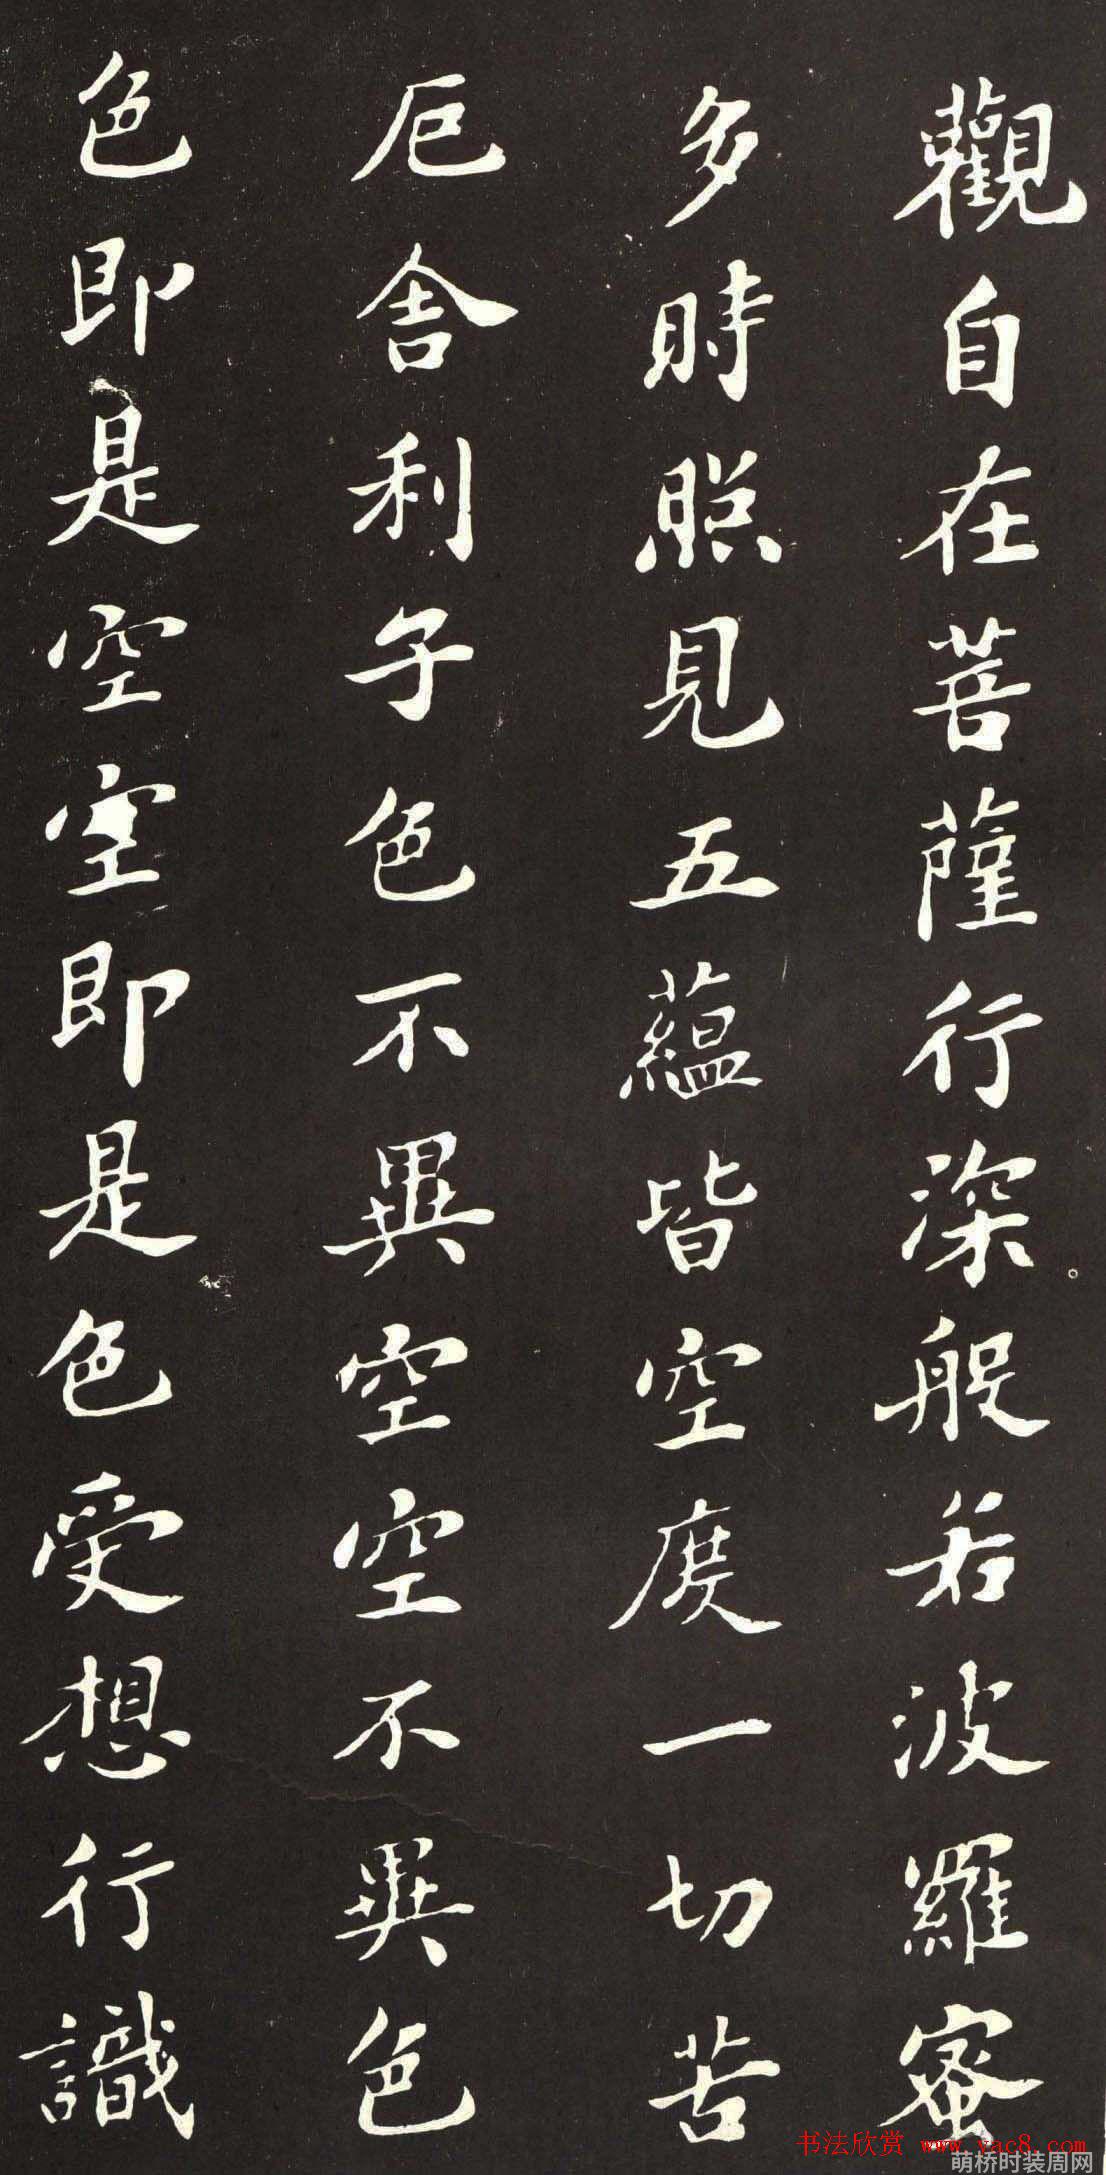 觀自在菩薩行深般若波羅蜜
多時照見五蘊皆空度一切苦
厄舍利子色不異空空不異色
色即是空空即是色受想行識
书法欣赏 www.yac8.com
萌桥时装周网